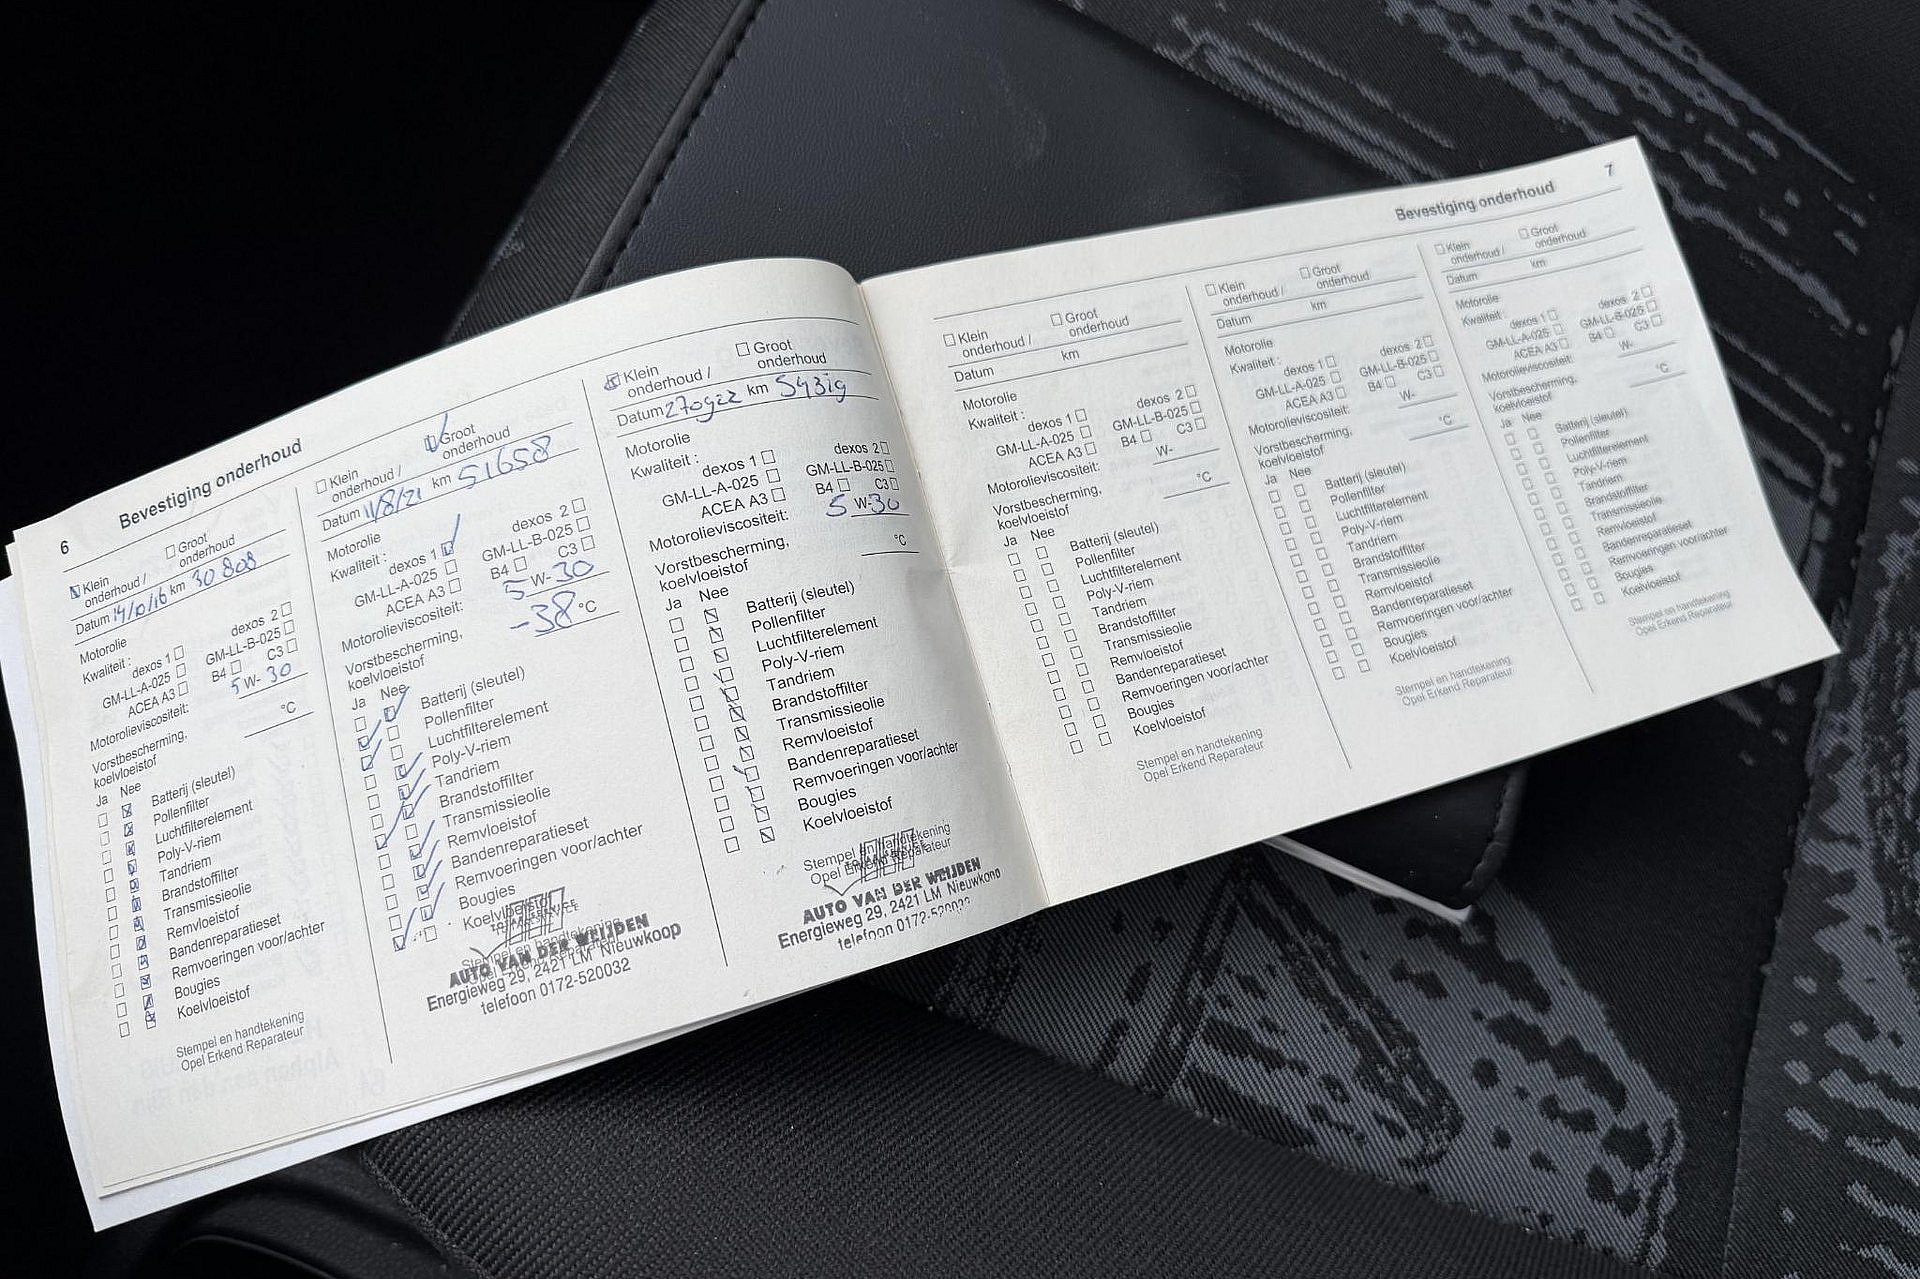 6
Bevestiging onderhoud
Klein onderhoud / Groot onderhoud
Datum 14/10/16 km 30808
Motorolie
Kwaliteit : dexos 1 dexos 2
GM-LL-A-025 GM-LL-B-025
ACEA A3 B4 C3
Motorolieviscositeit: 5 W- 30
Vorstbescherming, koelvloeistof °C
Ja Nee
Batterij (sleutel)
Pollenfilter
Luchtfilterelement
Poly-V-riem
Tandriem
Brandstoffilter
Transmissieolie
Remvloeistof
Bandenreparatieset
Remvoeringen voor/achter
Bougies
Koelvloeistof
Stempel en handtekening
Opel Erkend Reparateur
Klein onderhoud / Groot onderhoud
Datum 11/8/21 km 51658
Motorolie
Kwaliteit : dexos 1 dexos 2
GM-LL-A-025 GM-LL-B-025
ACEA A3 B4 C3
Motorolieviscositeit: 5 W- 30
Vorstbescherming, koelvloeistof -38 °C
Ja Nee
Batterij (sleutel)
Pollenfilter
Luchtfilterelement
Poly-V-riem
Tandriem
Brandstoffilter
Transmissieolie
Remvloeistof
Bandenreparatieset
Remvoeringen voor/achter
Bougies
Koelvloeistof
Stempel en handtekening
AUTO VAN DER WEIJDEN
Energieweg 29, 2421 LM Nieuwkoop
telefoon 0172-520032
Klein onderhoud / Groot onderhoud
Datum 270922 km 54319
Motorolie
Kwaliteit : dexos 1 dexos 2
GM-LL-A-025 GM-LL-B-025
ACEA A3 B4 C3
Motorolieviscositeit: 5 W- 30
Vorstbescherming, koelvloeistof °C
Ja Nee
Batterij (sleutel)
Pollenfilter
Luchtfilterelement
Poly-V-riem
Tandriem
Brandstoffilter
Transmissieolie
Remvloeistof
Bandenreparatieset
Remvoeringen voor/achter
Bougies
Koelvloeistof
Stempel en handtekening
Opel Erkend Reparateur
AUTO VAN DER WEIJDEN
Energieweg 29, 2421 LM Nieuwkoop
telefoon 0172-520032
Bevestiging onderhoud
7
Klein onderhoud / Groot onderhoud
Datum km
Motorolie
Kwaliteit : dexos 1 dexos 2
GM-LL-A-025 GM-LL-B-025
ACEA A3 B4 C3
Motorolieviscositeit: W-
Vorstbescherming, koelvloeistof °C
Ja Nee
Batterij (sleutel)
Pollenfilter
Luchtfilterelement
Poly-V-riem
Tandriem
Brandstoffilter
Transmissieolie
Remvloeistof
Bandenreparatieset
Remvoeringen voor/achter
Bougies
Koelvloeistof
Stempel en handtekening
Opel Erkend Reparateur
Klein onderhoud / Groot onderhoud
Datum km
Motorolie
Kwaliteit : dexos 1 dexos 2
GM-LL-A-025 GM-LL-B-025
ACEA A3 B4 C3
Motorolieviscositeit: W-
Vorstbescherming, koelvloeistof °C
Ja Nee
Batterij (sleutel)
Pollenfilter
Luchtfilterelement
Poly-V-riem
Tandriem
Brandstoffilter
Transmissieolie
Remvloeistof
Bandenreparatieset
Remvoeringen voor/achter
Bougies
Koelvloeistof
Stempel en handtekening
Opel Erkend Reparateur
Klein onderhoud / Groot onderhoud
Datum km
Motorolie
Kwaliteit : dexos 1 dexos 2
GM-LL-A-025 GM-LL-B-025
ACEA A3 B4 C3
Motorolieviscositeit: W-
Vorstbescherming, koelvloeistof °C
Ja Nee
Batterij (sleutel)
Pollenfilter
Luchtfilterelement
Poly-V-riem
Tandriem
Brandstoffilter
Transmissieolie
Remvloeistof
Bandenreparatieset
Remvoeringen voor/achter
Bougies
Koelvloeistof
Stempel en handtekening
Opel Erkend Reparateur